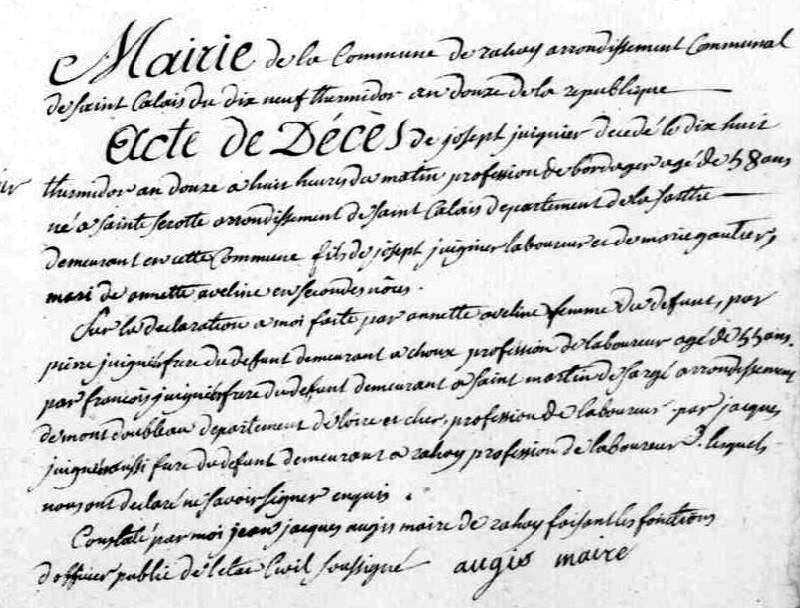 Mairie de la Commune de rahay arrondissement Communal
de saint Calais du dix neuf thermidor an douze de la republique
Acte de Décès de joseph juignier decedé le dix huit
thermidor an douze a huit heures du matin profession de bordager agé de 58 ans
né a sainte serotte arrondissement de saint Calais departement de la sarthe
demeurant en cette Commune fils de josept juignier laboureur et de marie gautier,
mari de annette aveline en secondes nôces.
Sur la declaration a moi faite par annette aveline femme du defunt, par
pierre juignier frere du defunt demeurant a choux profession de laboureur agé de 55 ans.
par francois juignier frere du defunt demeurant a saint martin de sargé arrondissement
de mont doubleau departement de loire et cher, profession de laboureur par jacques
juignier aussi frere du defunt demeurant a rahay profession de laboureur lesquels
nous ont declaré ne savoir signer enquis.
Constaté par moi jean jacques augis maire de rahay faisant les fonctions
d'officier public de l'etat Civil soussigné augis maire